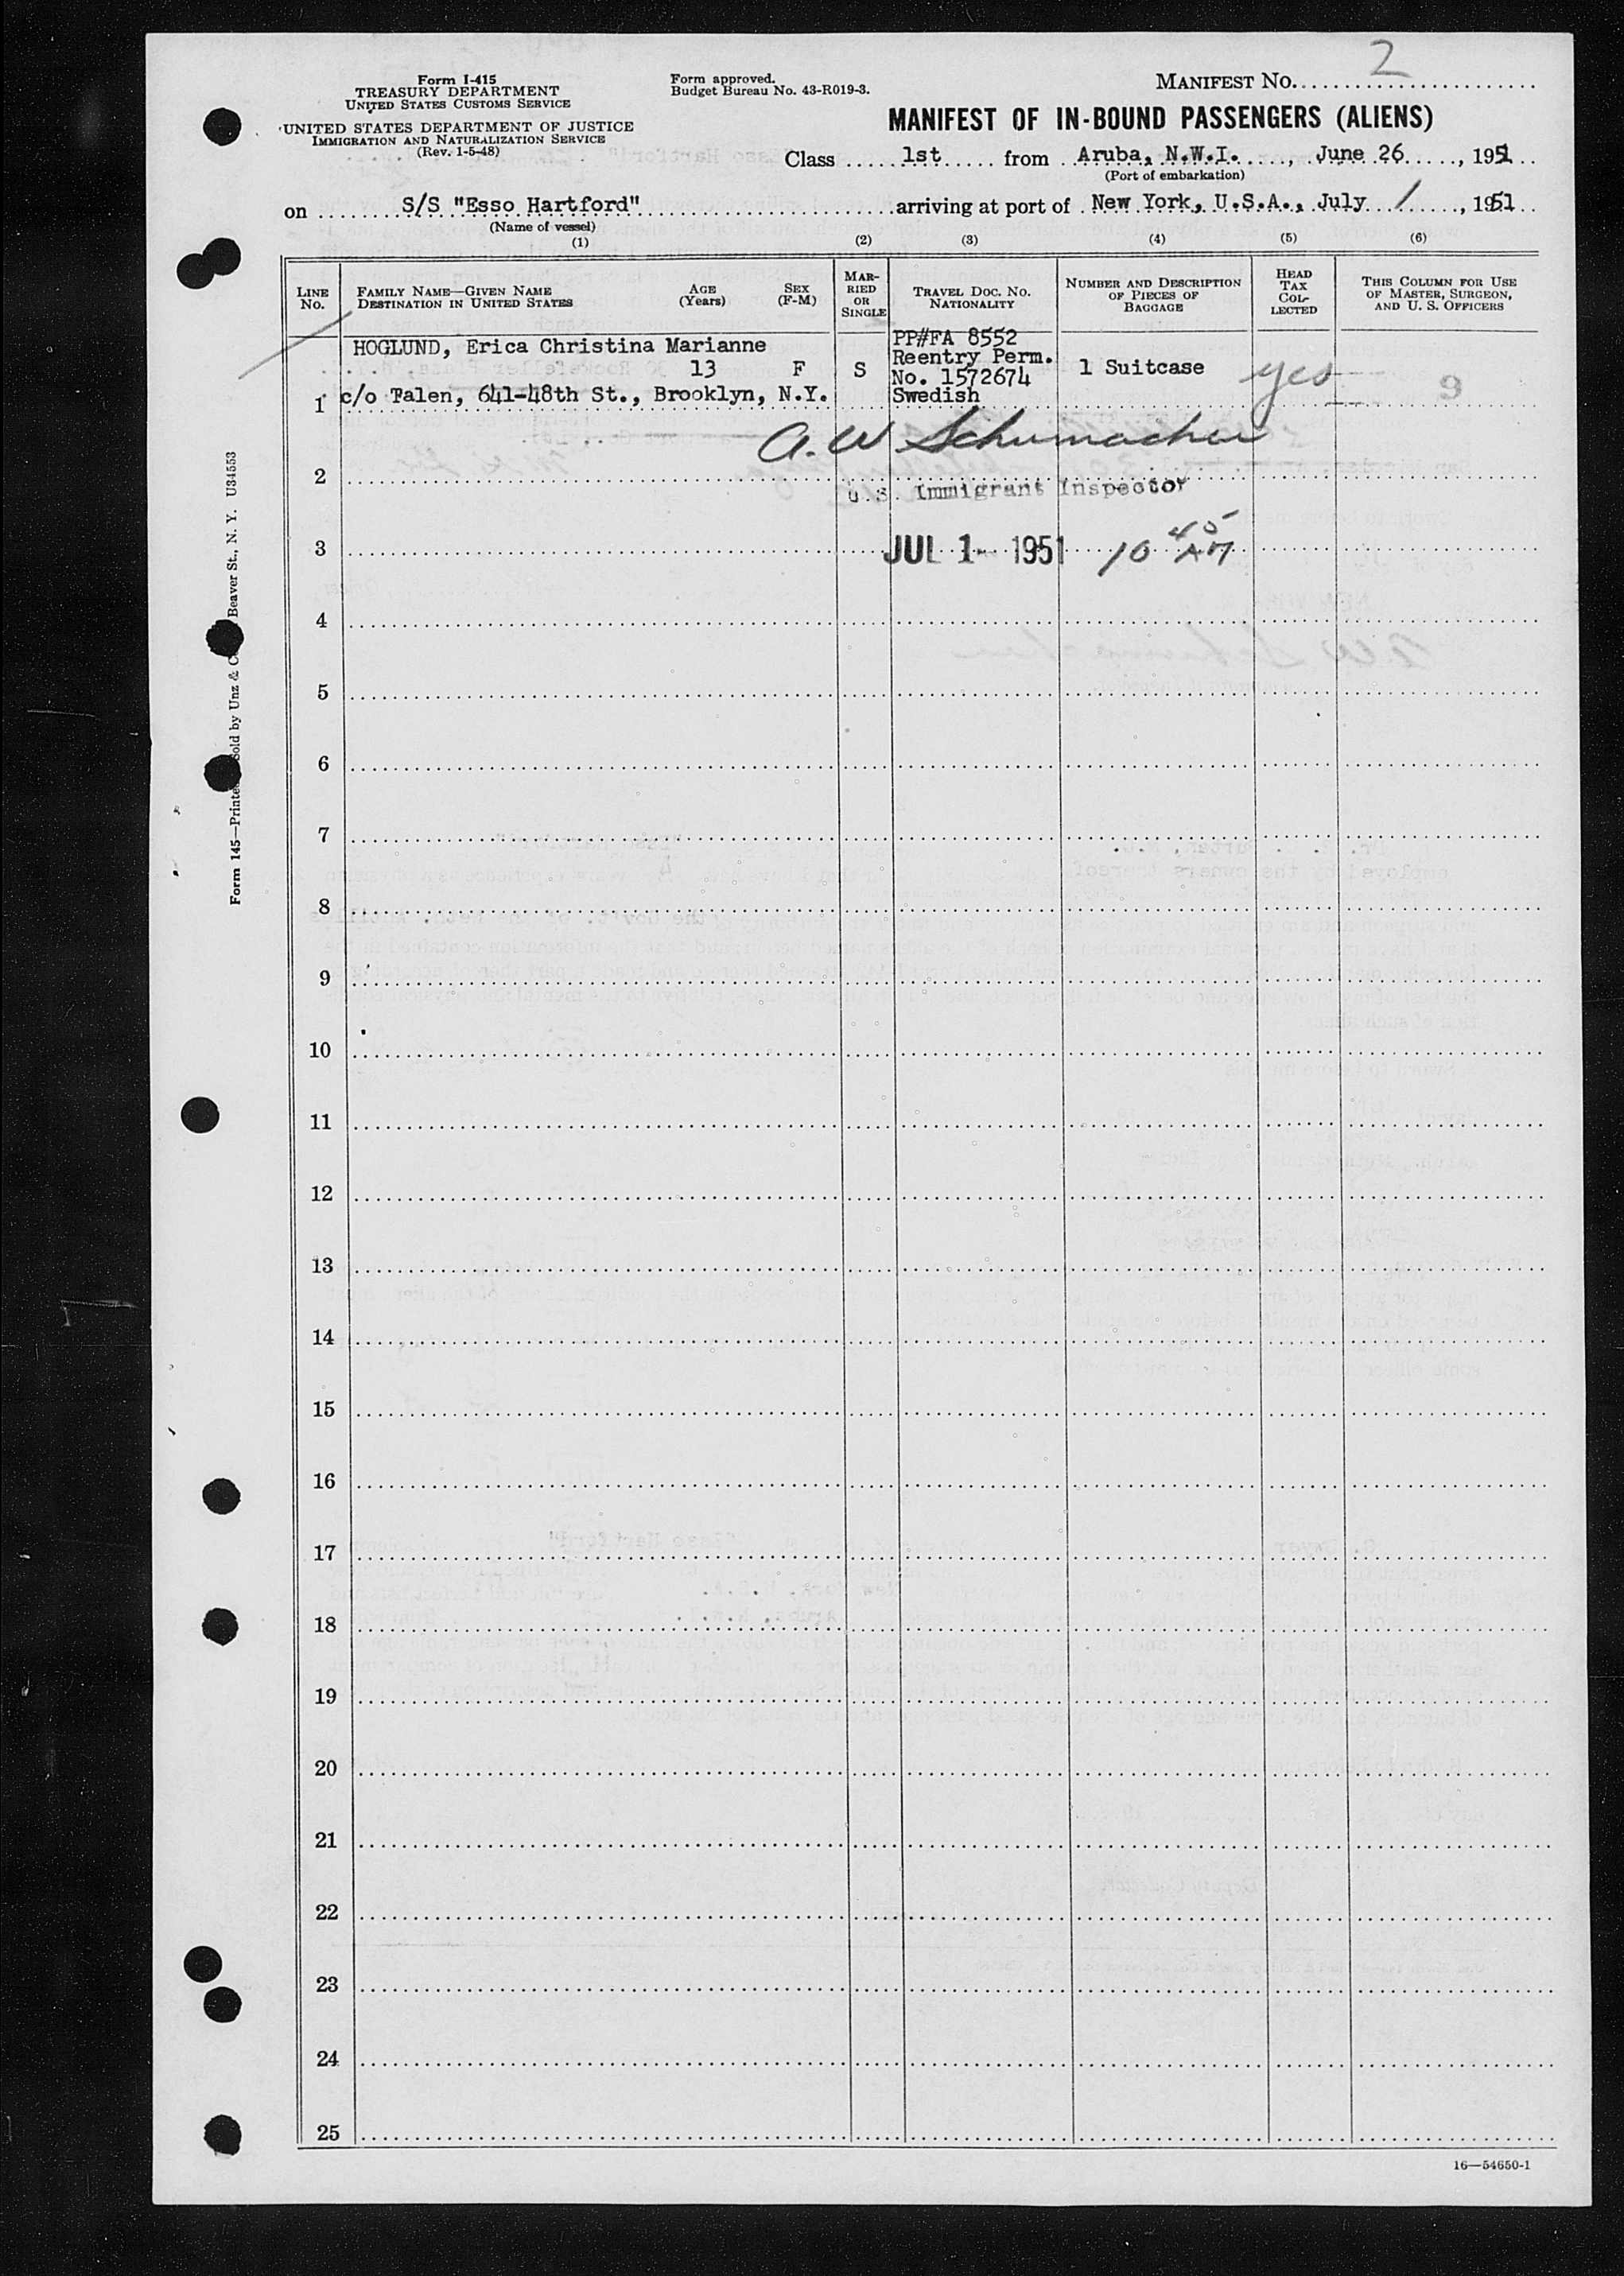 2
Form I-415
TREASURY DEPARTMENT
UNITED STATES CUSTOMS SERVICE
UNITED STATES DEPARTMENT OF JUSTICE
IMMIGRATION AND NATURALIZATION SERVICE
(Rev. 1-5-48)
Form approved.
Budget Bureau No. 43-R019-3.
MANIFEST NO.
MANIFEST OF IN-BOUND PASSENGERS (ALIENS)
Class 1st from Aruba, N.W.I., June 26, 1951
(Port of embarkation)
on S/S "Esso Hartford" arriving at port of New York, U.S.A., July 1, 1951
(Name of vessel)
(1) (2) (3) (4) (5) (6)
LINE NO.
FAMILY NAME—GIVEN NAME
DESTINATION IN UNITED STATES
AGE (Years)
SEX (F-M)
MARRIED OR SINGLE
TRAVEL DOC. NO. NATIONALITY
NUMBER AND DESCRIPTION OF PIECES OF BAGGAGE
HEAD TAX COLLECTED
THIS COLUMN FOR USE OF MASTER, SURGEON, AND U. S. OFFICERS
HOGLUND, Erica Christina Marianne
13 F S
c/o Talen, 641-48th St., Brooklyn, N.Y.
PP#FA 8552
Reentry Perm.
No. 1572674
Swedish
1 Suitcase
yes
1
A. W Schumacher
2
U.S. Immigrant Inspector
3
JUL 1 - 1951 10 45 AM
4
5
6
7
8
9
10
11
12
13
14
15
16
17
18
19
20
21
22
23
24
25
16—54650-1
Form 145—Printed Sold by Unz & C Beaver St., N. Y. U34553